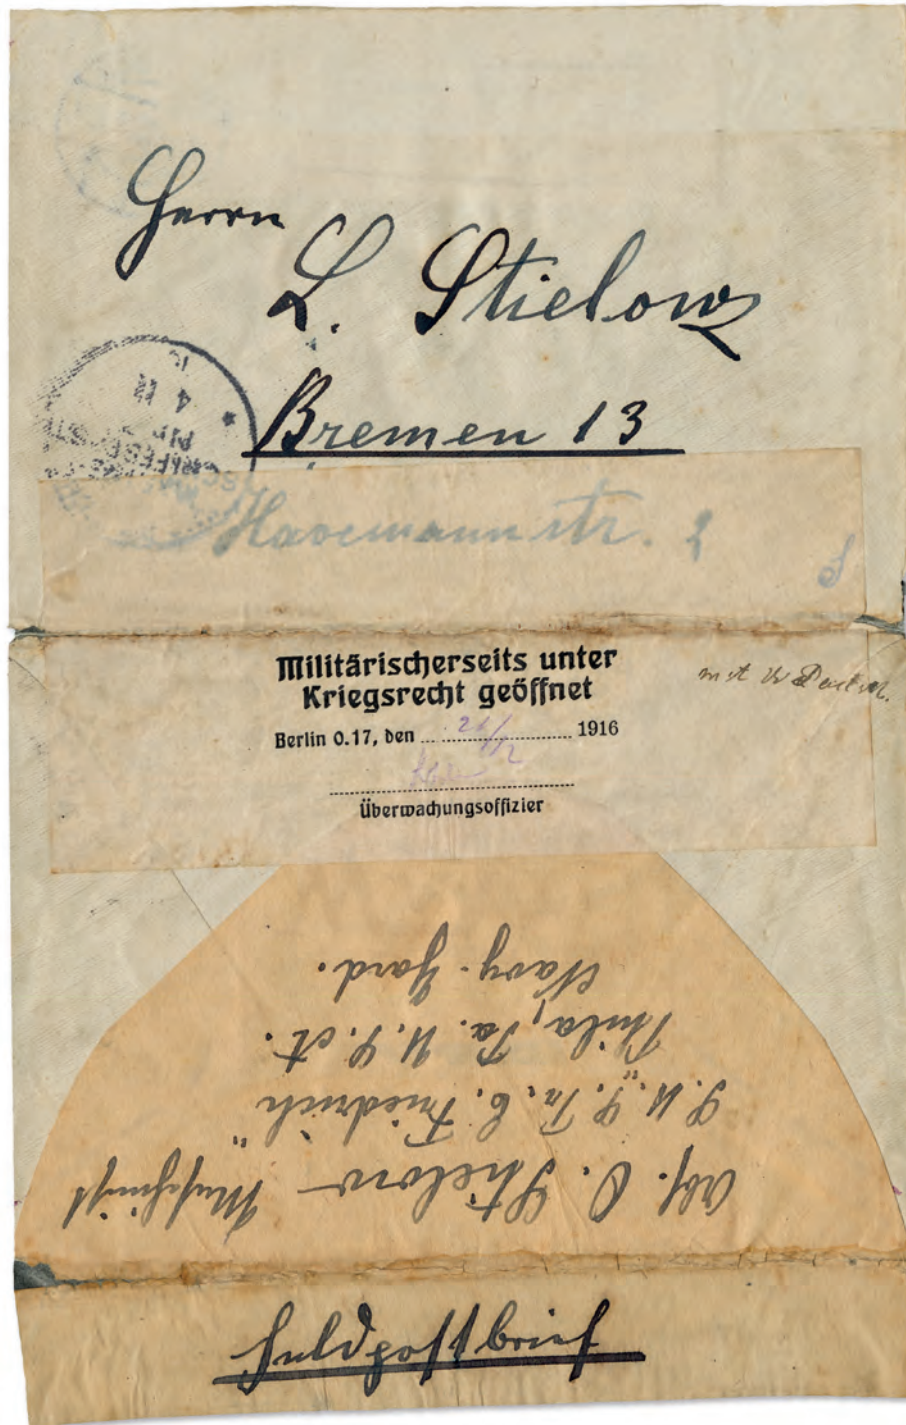 Herrn
L. Stielow
Bremen 13
Havemannstr. 2
Militärischerseits unter
Kriegsrecht geöffnet
Berlin O.17, den 21/12 1916
Überwachungsoffizier
mit
Abs. O. Stielow
S. M. S. "Pr. E. Friedrich"
Phila, Pa. U. S. A.
Navy-Yard.
Feldpostbrief